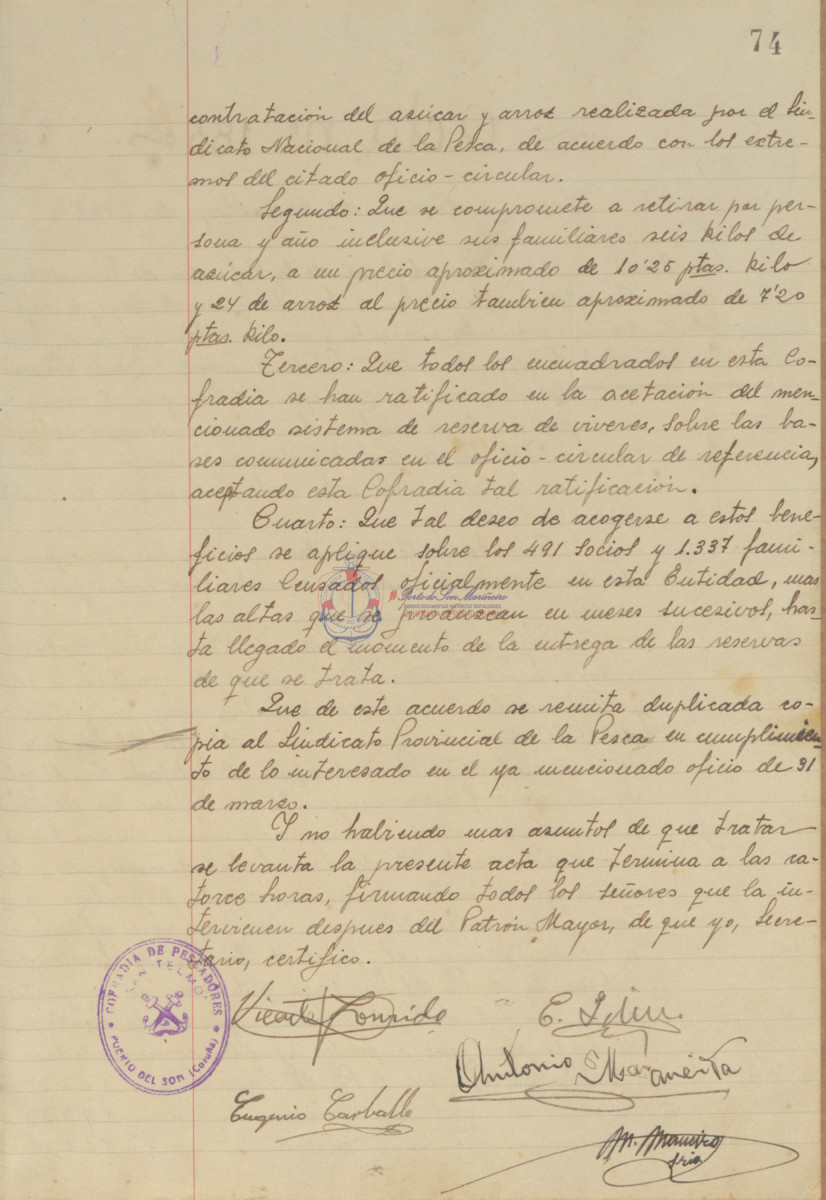 74
contratación del azúcar y arroz realizada por el Sin-
dicato Nacional de la Pesca, de acuerdo con los extre-
mos del citado oficio-circular.
Segundo: Que se compromete a retirar por per-
sona y año inclusive sus familiares seis kilos de
azúcar, a un precio aproximado de 10'25 ptas. kilo
y 24 de arroz al precio tambien aproximado de 7'20
ptas. kilo.
Tercero: Que todos los encuadrados en esta Co-
fradia se han ratificado en la acetación del men-
cionado sistema de reserva de viveres, sobre las ba-
ses comunicadas en el oficio-circular de referencia,
aceptando esta Cofradia tal ratificación.
Cuarto: Que tal deseo de acogerse a estos bene-
ficios se aplique sobre los 491 socios y 1.337 fami-
liares censados oficialmente en esta Entidad, mas
Porto do Son Mariñeiro
las altas que se produzcan en meses sucesivos, has-
ta llegado el momento de la entrega de las reservas
de que se trata.
Que de este acuerdo se remita duplicada co-
pia al Sindicato Provincial de la Pesca en cumplimien-
to de lo interesado en el ya mencionado oficio de 31
de marzo.
Y no habiendo mas asuntos de que tratar
se levanta la presente acta que termina a las ca-
torce horas, firmando todos los señores que la in-
tervienen despues del Patrón Mayor, de que yo, Secre-
tario, certifico.
COFRADIA DE PESCADORES
SAN TELMO
PUERTO DEL SON (Coruña)
Vicente
E.
Antonio
Eugenio Carballo
M. Maneiro